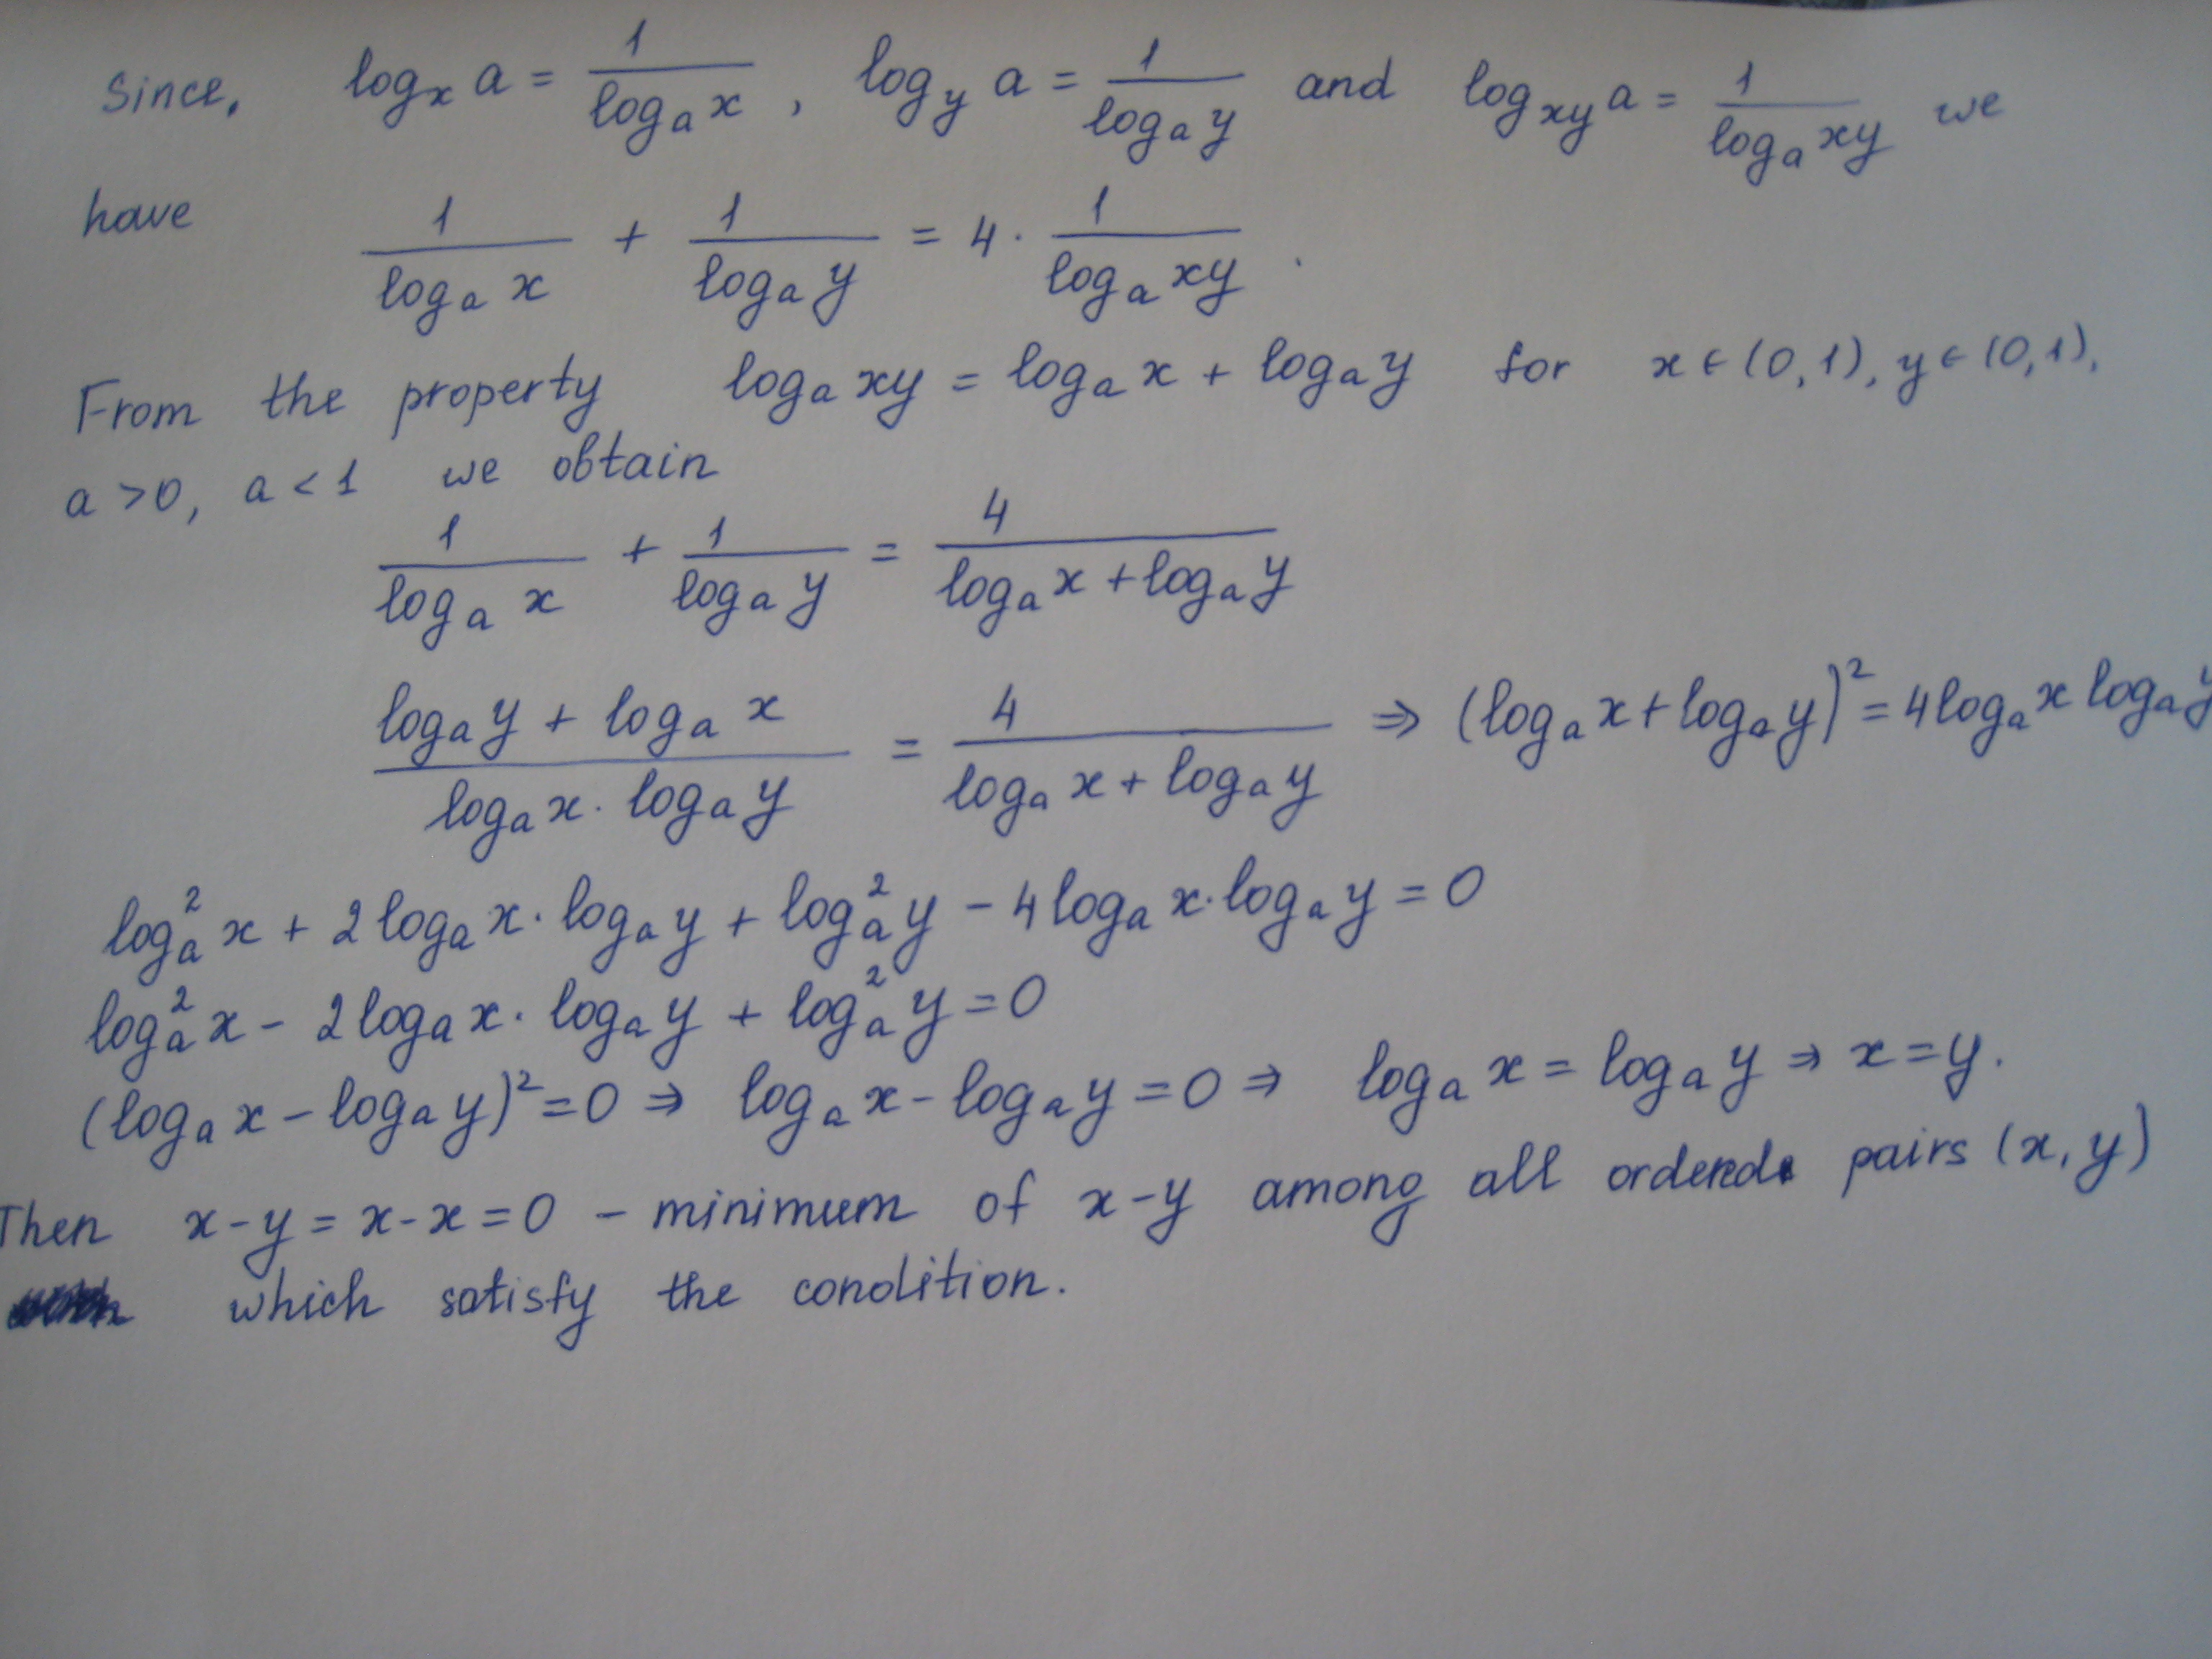 Since, log_x a = 1/(log_a x), log_y a = 1/(log_a y) and log_xy a = 1/(log_a xy) we
have 1/(log_a x) + 1/(log_a y) = 4 · 1/(log_a xy).
From the property log_a xy = log_a x + log_a y for x ∈ (0,1), y ∈ (0,1),
a > 0, a < 1 we obtain
1/(log_a x) + 1/(log_a y) = 4/(log_a x + log_a y)
(log_a y + log_a x)/(log_a x · log_a y) = 4/(log_a x + log_a y) ⇒ (log_a x + log_a y)² = 4 log_a x log_a y
log_a² x + 2 log_a x · log_a y + log_a² y - 4 log_a x · log_a y = 0
log_a² x - 2 log_a x · log_a y + log_a² y = 0
(log_a x - log_a y)² = 0 ⇒ log_a x - log_a y = 0 ⇒ log_a x = log_a y ⇒ x = y.
Then x - y = x - x = 0 - minimum of x - y among all ordered pairs (x, y)
which satisfy the condition.